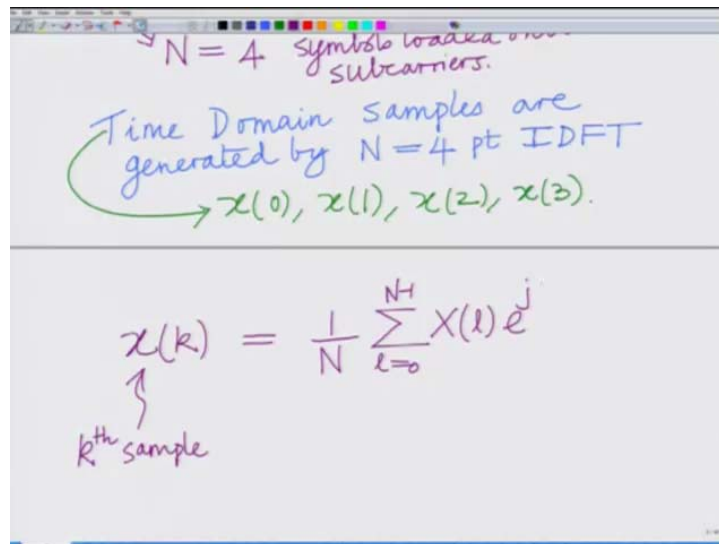 N = 4 symbols loaded
subcarriers.
Time Domain samples are
generated by N = 4 pt IDFT
x(0), x(1), x(2), x(3).
x(k) = 1/N ∑_{l=0}^{N-1} X(l) e^j
kth sample